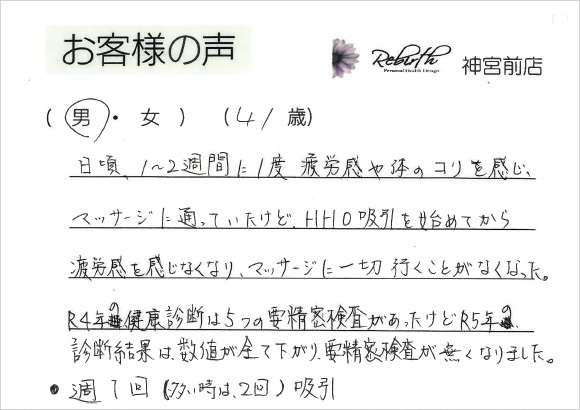 お客様の声
Rebirth
Personal Health Design
神宮前店
(男・女) (41歳)
日頃、1～2週間に1度疲労感や体のコリを感じ、
マッサージに通っていたけど、HHO吸引を始めてから
疲労感を感じなくなり、マッサージに一切行くことがなくなった。
R4年の健康診断は5つの要精密検査があったけどR5年の
診断結果は、数値が全て下がり、要精密検査が無くなりました。
●週1回(多い時は、2回)吸引